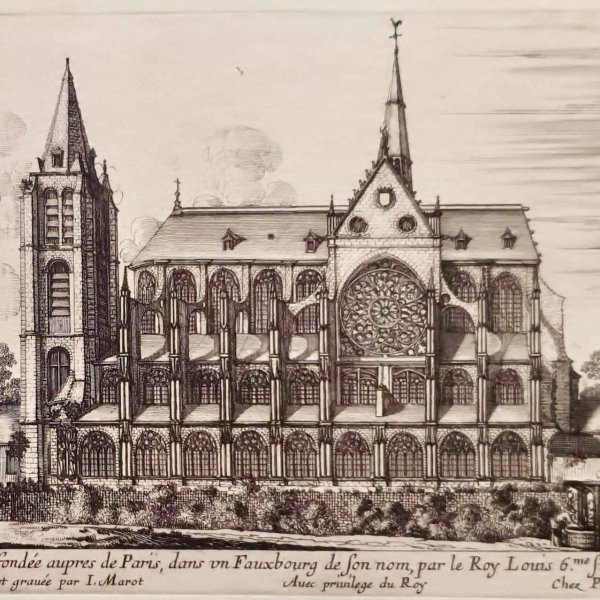 fondée aupres de Paris, dans vn Fauxbourg de son nom, par le Roy Louis 6.me
et grauée par I. Marot Auec priuilege du Roy Chez P